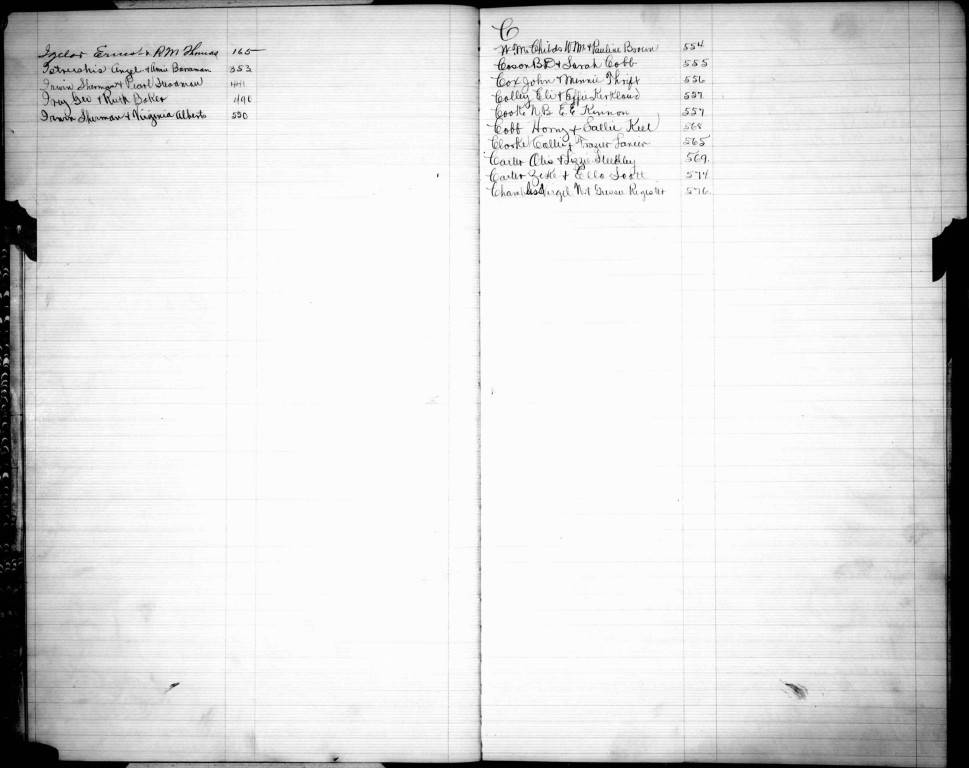 Ernest & R M Thomas 165
Angel & Annie Bowman 353
Irwin Sherman & Pearl 441
Ivey Geo & Ruth Baker 496
Irwin Sherman & Virginia Alberts 550
C
Wm Childs W M & Pauline Brown 554
Coson B D & Sarah Cobb 555
Cox John & Minnie Thrift 556
Colley Eli & Effie Kirkland 557
Cooke N B E E Kennon 557
Cobb & Sallie Keel 568
Clarke Callie & Frazier Lanier 565
Carter Otis & Lizzie Steekley 569
Carter Zeke & Ella Scott 574
Virgil Register 576